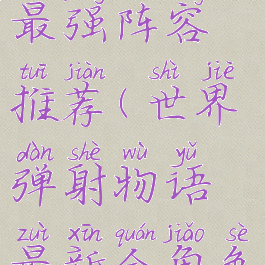 最强阵容
tuī jiàn shì jiè
推荐(世界
dàn shè wù yǔ
弹射物语
zuì xīn quán jiǎo sè
最新全角色